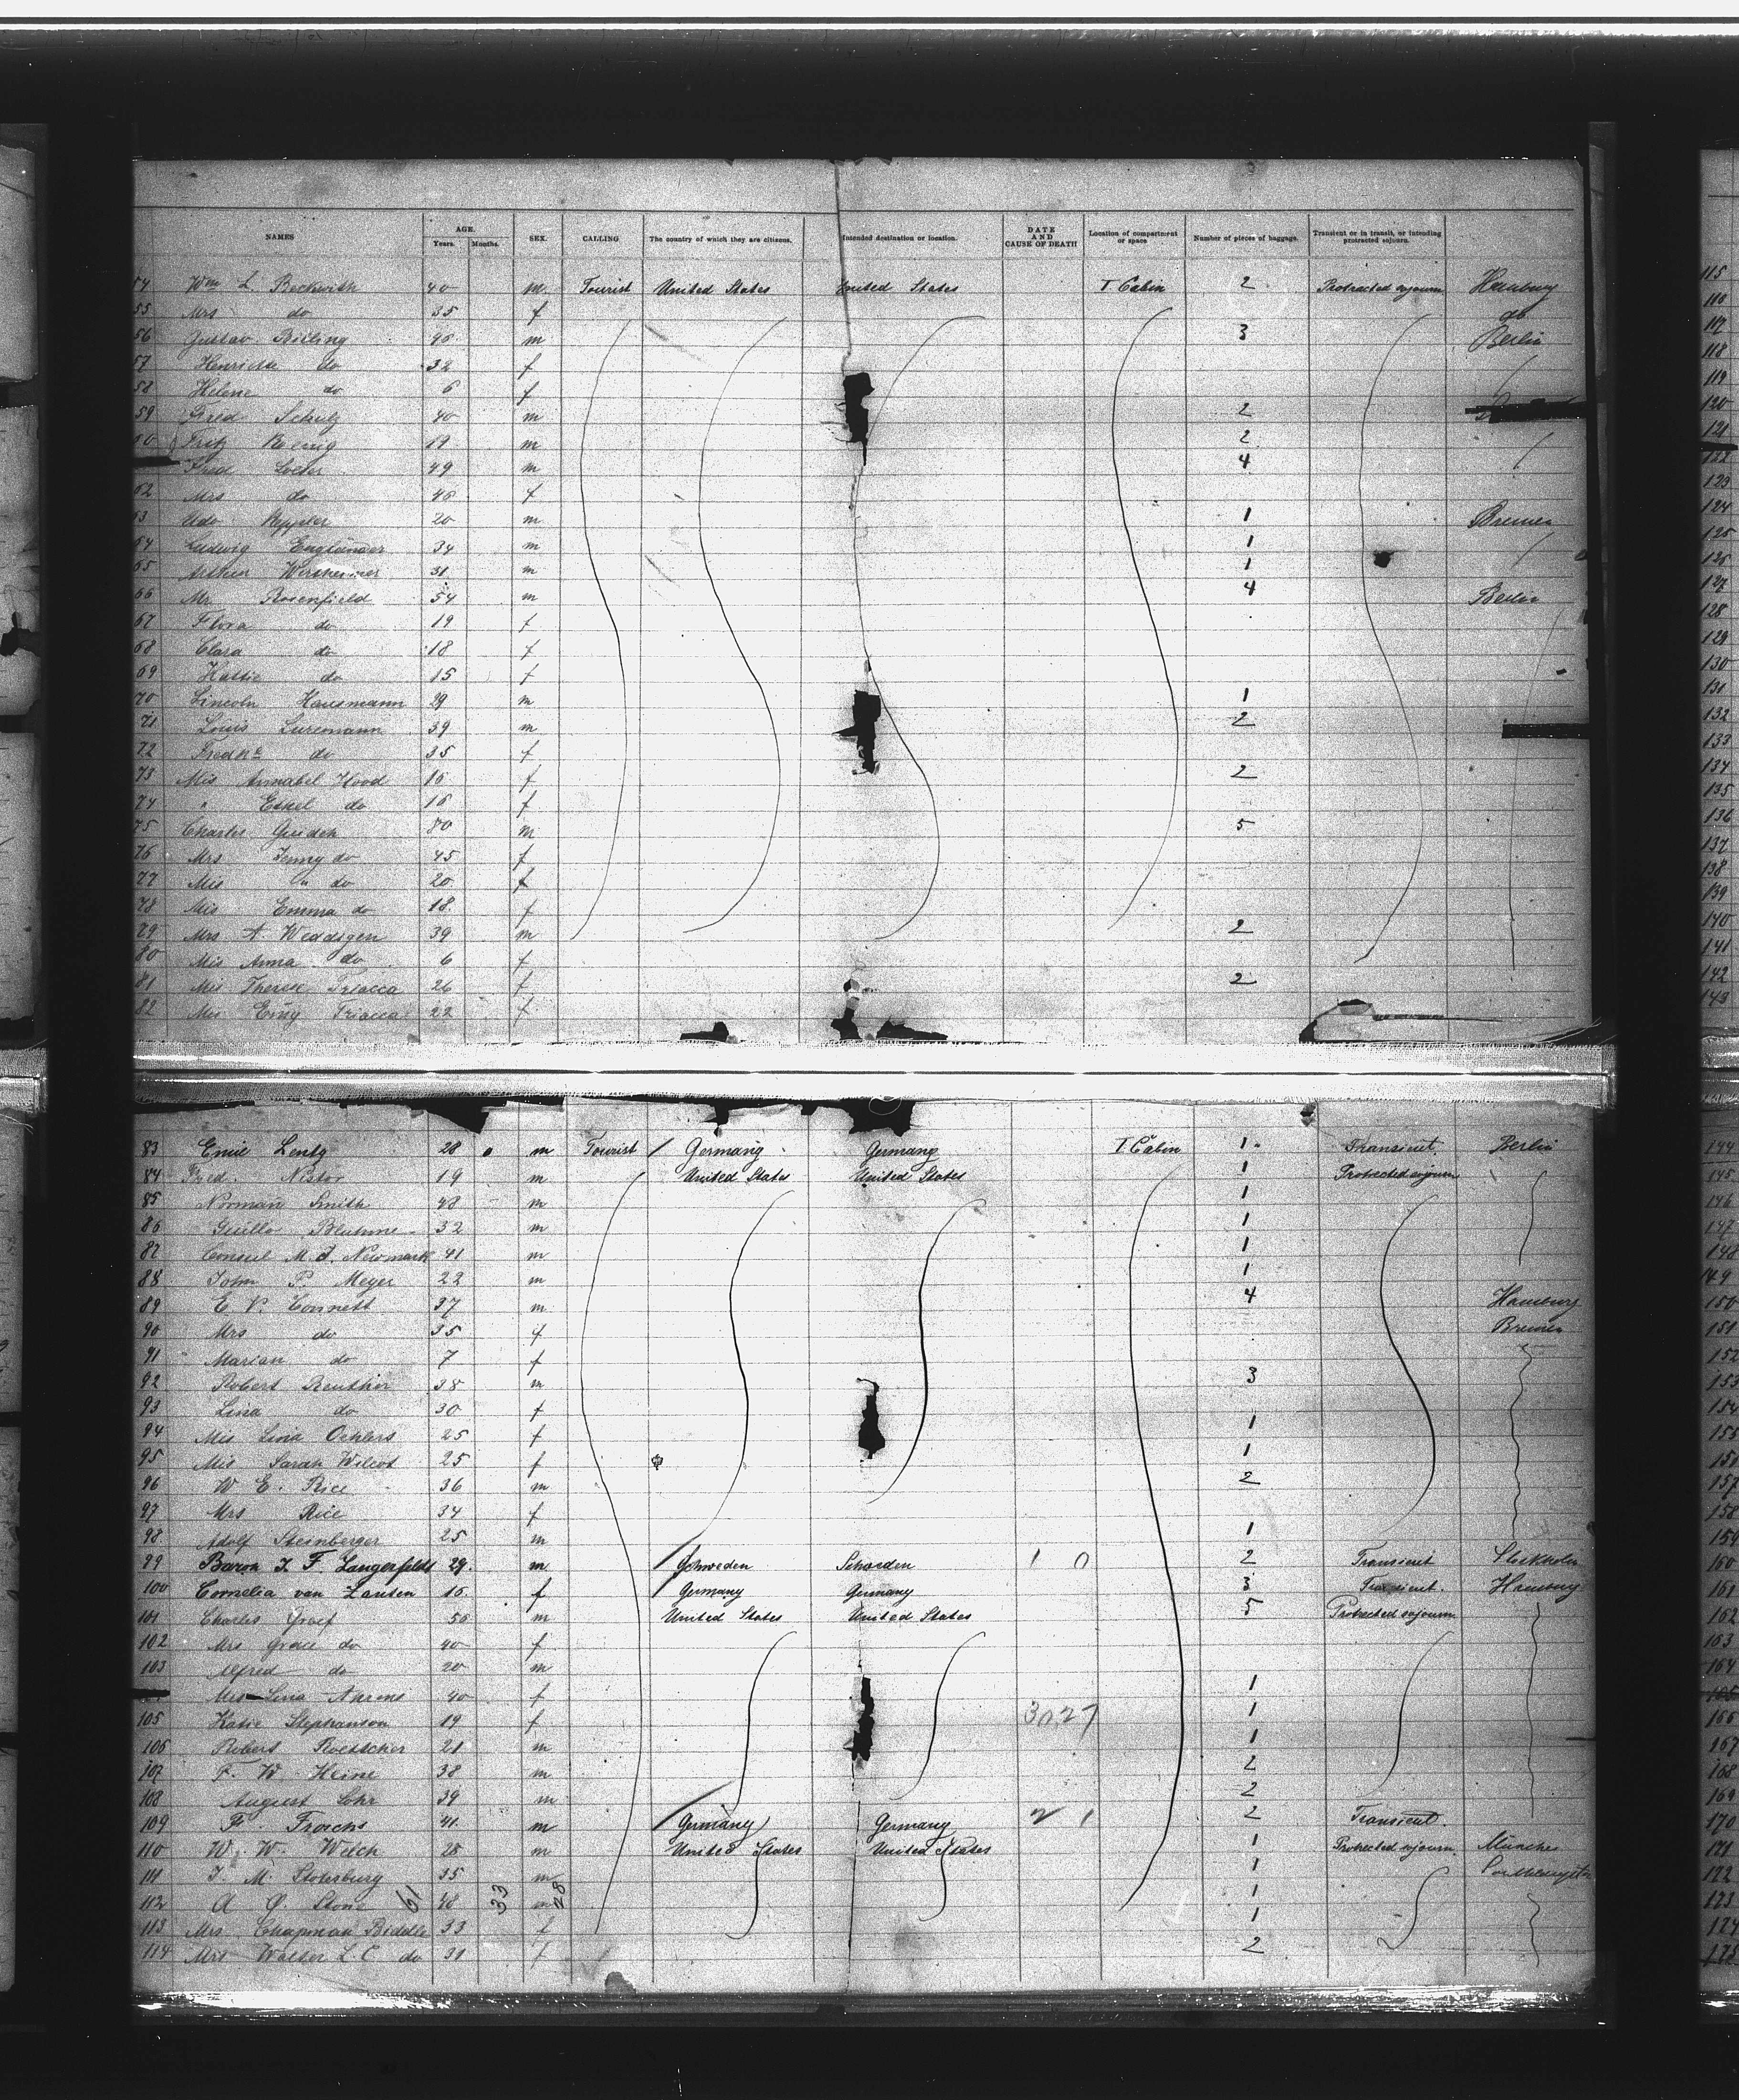 NAMES AGE. Years. Months. SEX. CALLING The country of which they are citizens. Intended destination or location. DATE AND CAUSE OF DEATH Location of compartment or space Number of pieces of baggage. Transient or in transit, or intending protracted sojourn.
54 Wm L. Beckwith 40 m Tourist United States United States 1. Cabin 2 Protracted sojourn Hamburg
55 Mrs do 35 f do
56 Gustav Billing m 3 Berlin
57 do 32 f
58 Helene do 6 f
59 Fred Schulz 40 m 2
60 Fritz 19 m 2
Fred 49 m 4
62 Mrs do f
63 Udo Keppler 20 m 1 Bremen
64 Ludwig Engländer 34 m 1
65 Arthur Wertheimer 31 m 1
66 Mr Rosenfield 54 m 4 Berlin
67 Flora do 19 f
68 Clara do 18 f
69 Hattie do 15 f
70 Lincoln Hausmann 29 m 1
71 Louis 39 m 2
72 do 35 f
73 Mis Annabel Hood 16 f 2
74 " do 16 f
75 Charles m 5
76 Mrs Jenny do 45 f
77 Mis " do 20 f
78 Mis Emma do 18 f
79 Mrs A Weddigen 39 m 2
80 Mis Anna do 6 f
81 Mis Therese Triacca 26 f 2
82 Mis Emy Triacca 22 f
83 Emil Lentz 28 m Tourist Germany Germany 1. Cabin 1 Transient Berlin
84 Fred. Nistor 19 m United States United States 1 Protracted sojourn
85 Norman Smith 48 m 1
86 Bluhme 32 m 1
87 Consul M. J. Newmark 41 m 1
88 John P. Meyer 22 m 1
89 E. V. Connett 37 m 4 Hamburg
90 Mrs do 35 f Bremen
91 Marian do 7 f
92 Robert Reuther 38 m 3
93 Lina do 30 f
94 Mis Lina Oehlers 25 f 1
95 Mis Sarah Wilcox 25 f 1
96 W. E. Rice 36 m 2
97 Mrs Rice 34 f
98 Adolf Steinberger 25 m 1
99 Baron F. Langerfelds 29. m Schweden Schweden 1 0 2 Transient Stockholm
100 Cornelia van Zanten 16 f Germany Germany 3 Transient. Hamburg
101 Charles Graef 50 m United States United States 5 Protracted sojourn
102 Mrs Grace do 40 f
103 Alfred do 20 m
Mrs Lina Ahrens 40 f 1
105 Katie Stephanson 19 f 3027 1
106 Robert Roetscher 21 m 1
107 F. W. Heine 38 m 2
108 August Lohr 39 m 2
109 F. 41 m Germany Germany 2 1 2 Transient.
110 W. W. Welch 28 m United States United States 1 Protracted sojourn München
111 J. M. Stotesbury 35 m 1 Southampton
112 A Stone 61 48 33 m 28 1
113 Mrs Chapman Biddle 33 f 1
114 Mrs Walter L C do 31 f 2
115
116
117
118
119
120
121
123
124
125
126
127
128
129
130
131
132
133
134
135
136
137
138
139
140
141
142
143
144
145
146
147
148
149
150
151
152
153
154
155
157
158
159
160
161
162
163
164
166
167
168
169
170
171
172
173
174
175